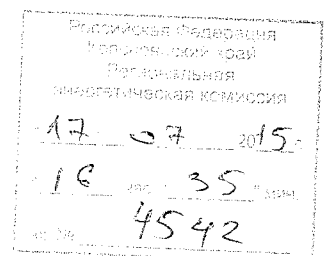 Российская Федерация
край
Региональная
энергетическая комиссия
"17" 07 2015 г.
"16" час. "35" мин.
№ 4542